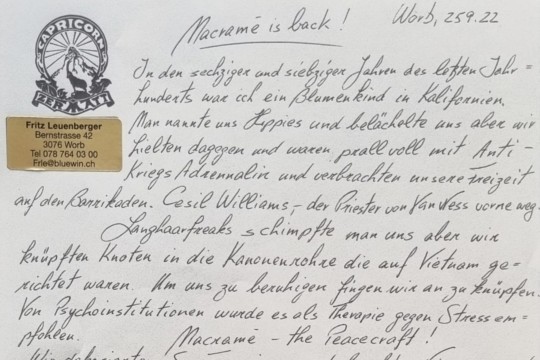 Macramé is back !
Worb, 25.9.22
CAPRICORN
ZERMATT
Fritz Leuenberger
Bernstrasse 42
3076 Worb
Tel 078 764 03 00
Frle@bluewin.ch
In den sechziger und siebziger Jahren des letzten Jahr=
hunderts war ich ein Blumenkind in Kalifornien.
Man nannte uns Hippies und belächelte uns aber wir
hielten dagegen und waren prall voll mit Anti-
Kriegs Adrenalin und verbrachten unsere Freizeit
auf den Barrikaden. Cesil Williams,- der Priester von Van Ness vorne weg.
Langhaarfreaks schimpfte man uns aber wir
knüpften Knoten in die Kanonenrohre die auf Vietnam ge-
richtet waren. Um uns zu beruhigen fingen wir an zu knüpfen.
Von Psychoinstitutionen wurde es als Therapie gegen Stress em-
pfohlen. Macramé - the Peacecraft !